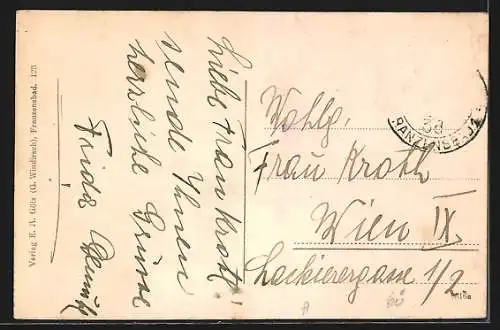 Liebe Frau Kroth!
sende Ihnen
herzliche Grüsse
Frida
Wohlg.
Frau Kroth
Wien IX.
Lackierergasse 1/2
Verlag E. A. Götz (G. Windirsch), Franzensbad. 123